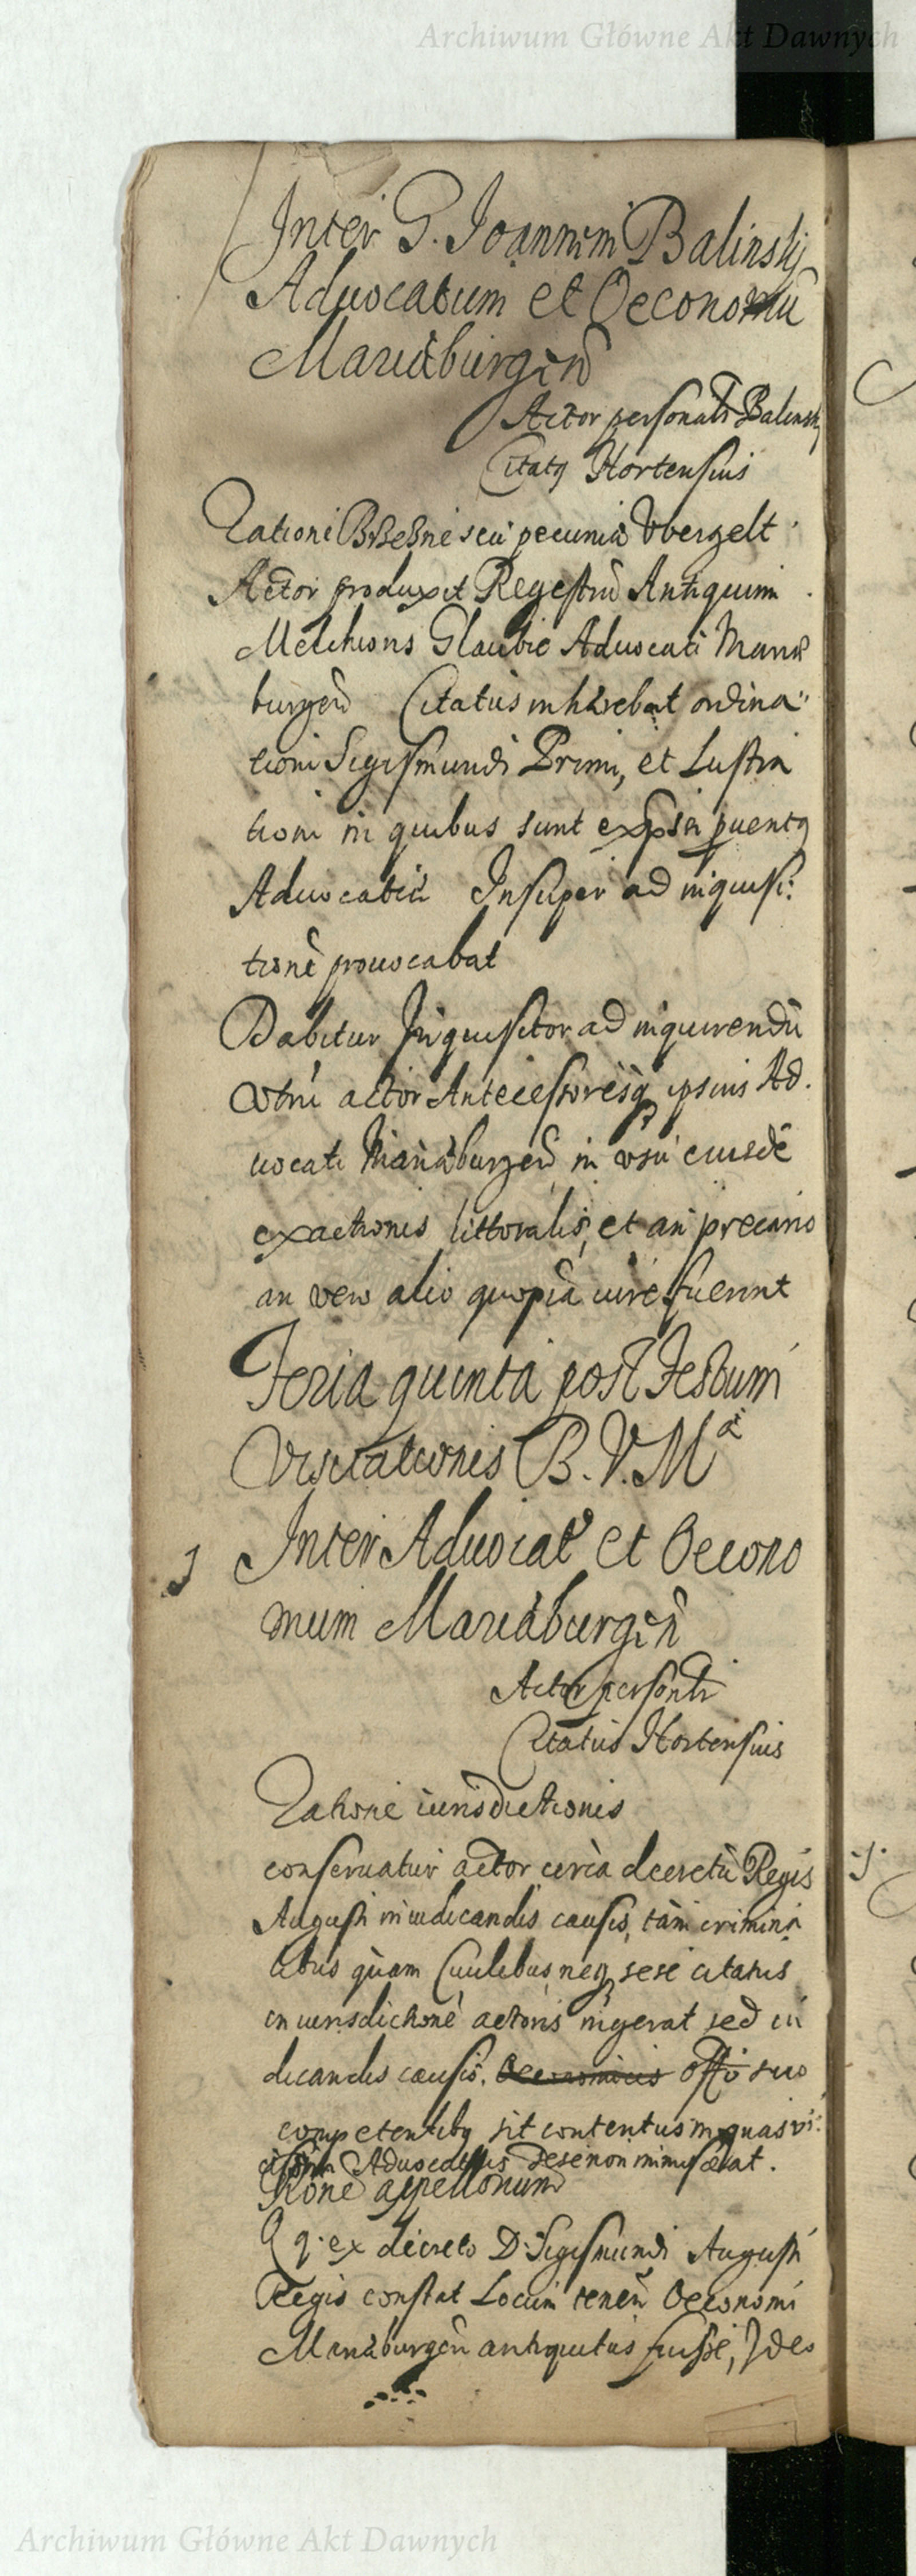 Archiwum Główne Akt Dawnych
Inter G. Joannem Balinskj
Aduocatum et Oeconomũ
Mariæburgeñ
Actor personalr Balinskj
Citatq Hortensius
Rationi seu pecuniæ Vbergelt
Actor produxit Regestrũ Antiquum
Melchioris Glaubic Aduocati Mariæ
burgeñ Citatus inhærebat ordina:
tioni Sigismundi Primi, et Lustra
tioni in quibus sunt expssi puentq
Aduocatiæ Insuper ad inquisi:
tionẽ prouocabat
Dabitur Inquisitor ad inquirendũ
Vtrũ actor Antecessoresq ipsius Ad.
uocati Mariæburgeñ in vsu eiusdẽ
exactionis littoralis, et an precario
an vero alio quopiã iure fuerint
Feria quinta post Festum
Visitationis B. V. Mæ
Inter Aduocat et Oecono
mum Mariæburgeñ
Actor personlr
Citatus Hortensius
Rationẽ iurisdictionis
conseruatur actor circa decretũ Regis
Augusti in iudicandis causis, tàm crimina
libus quàm Ciuilibus, neq sese citatus
in iurisdictionẽ actoris ingerat sed iu
dicandis causis. Oeconomicis offo suo
competentibq sit contentus in quas vi:
Aduocatus sese non immisceat.
Rõne appellonum
Qq. ex decreto D. Sigismundi Augusti
Regis constat Locum teneñ Oeconomi
Mariæburgeñ antiquitus fuisse, Ideo
J
Archiwum Główne Akt Dawnych